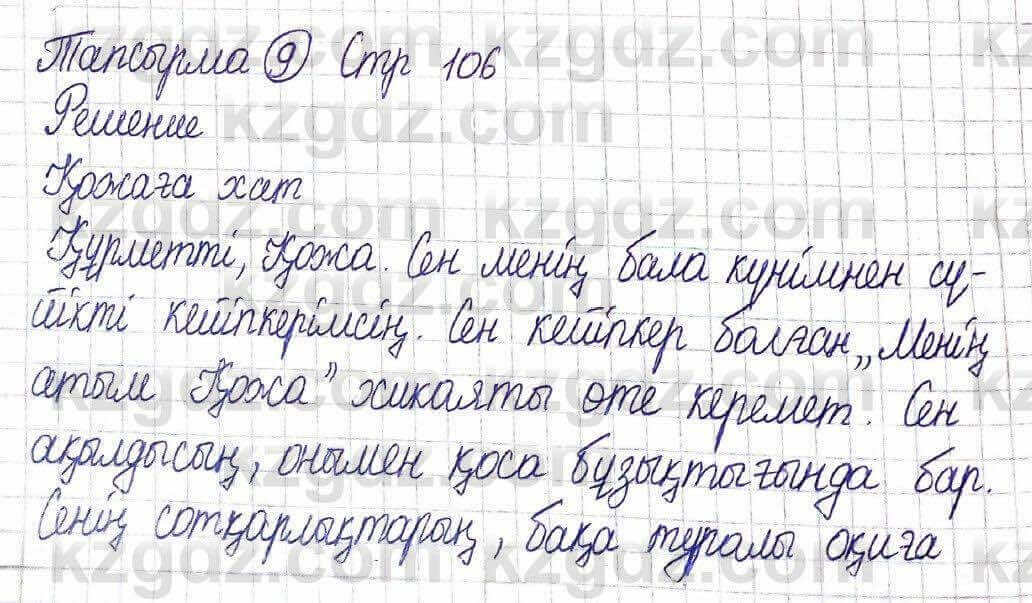 Тапсырма 9 Стр 106
Решение
Қожаға хат
Құрметті, Қожа. Сен менің бала күнімнен сү-
йікті кейіпкерімсің. Сен кейіпкер болған „Менің
атым Қожа” хикаяты өте керемет. Сен
ақылдысың, онымен қоса бұзықтығында бар.
Сенің сотқарлықтарың, бақа туралы оқиға
kzgdz.com